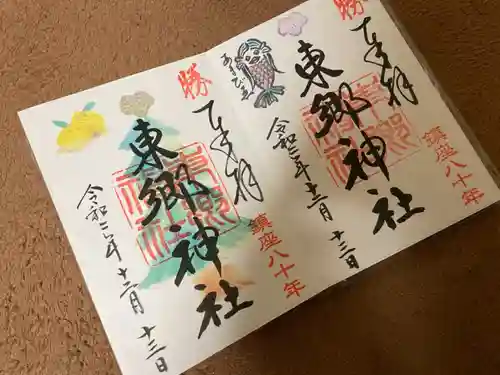 勝
奉拝
東郷神社
鎮座八十年
令和二年十二月十三日
あまびゑ
勝
奉拝
東郷神社
鎮座八十年
令和二年十二月十三日